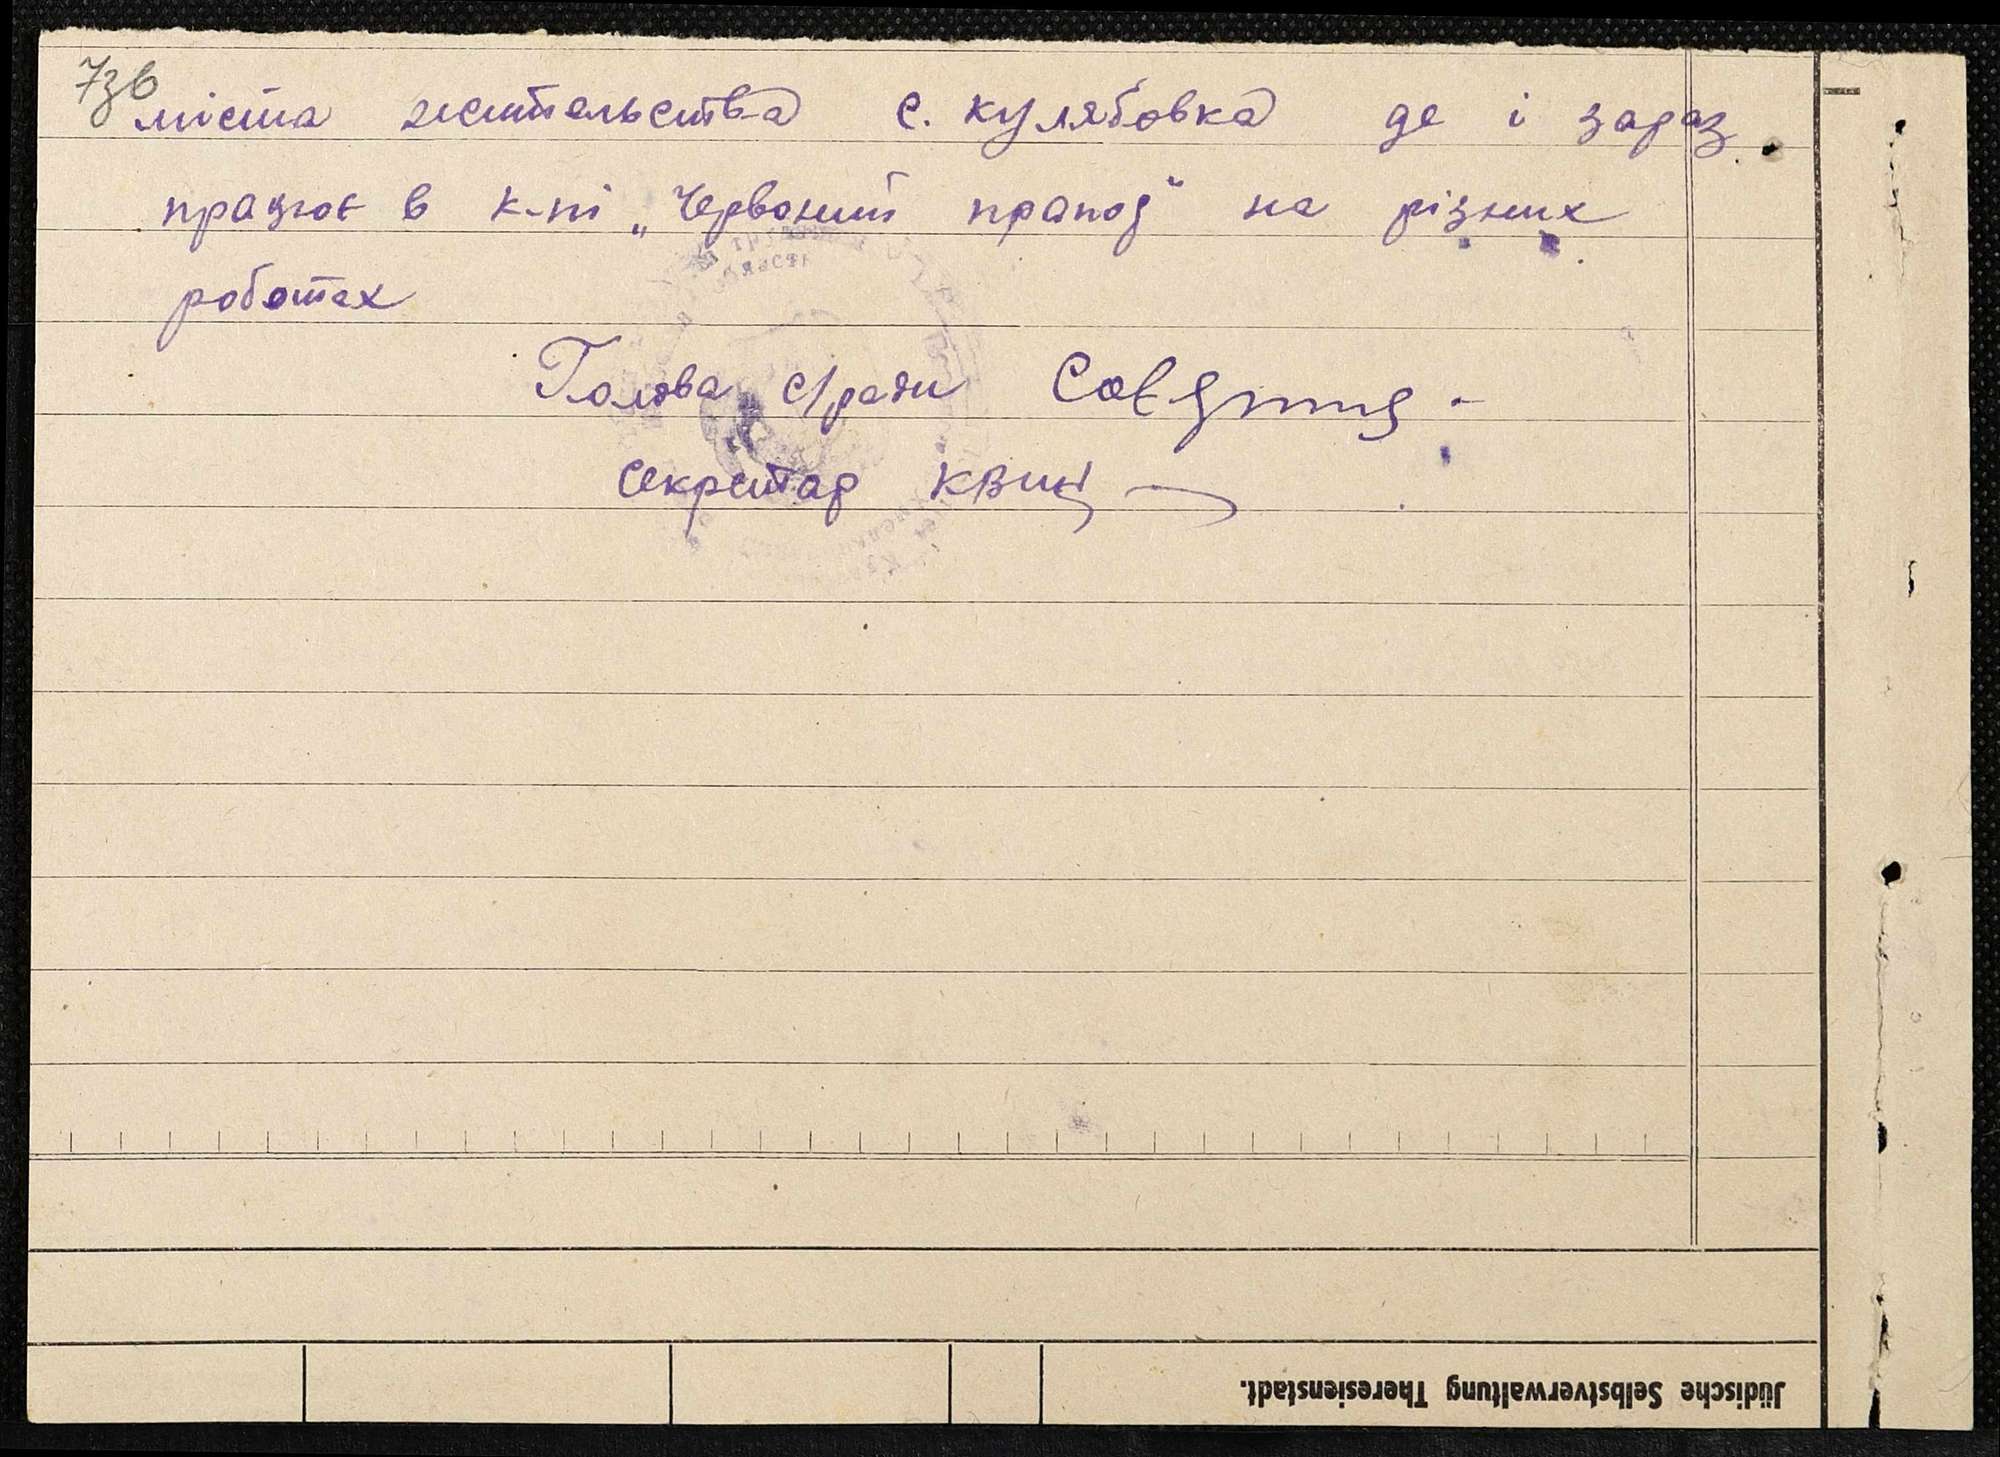 7зв
міста жительства с. Кулябовка де і зараз
працює в к-пі „Червоний прапор" на різних
роботах
Голова с/ради
Секретар
Jüdische Selbstverwaltung Theresienstadt.